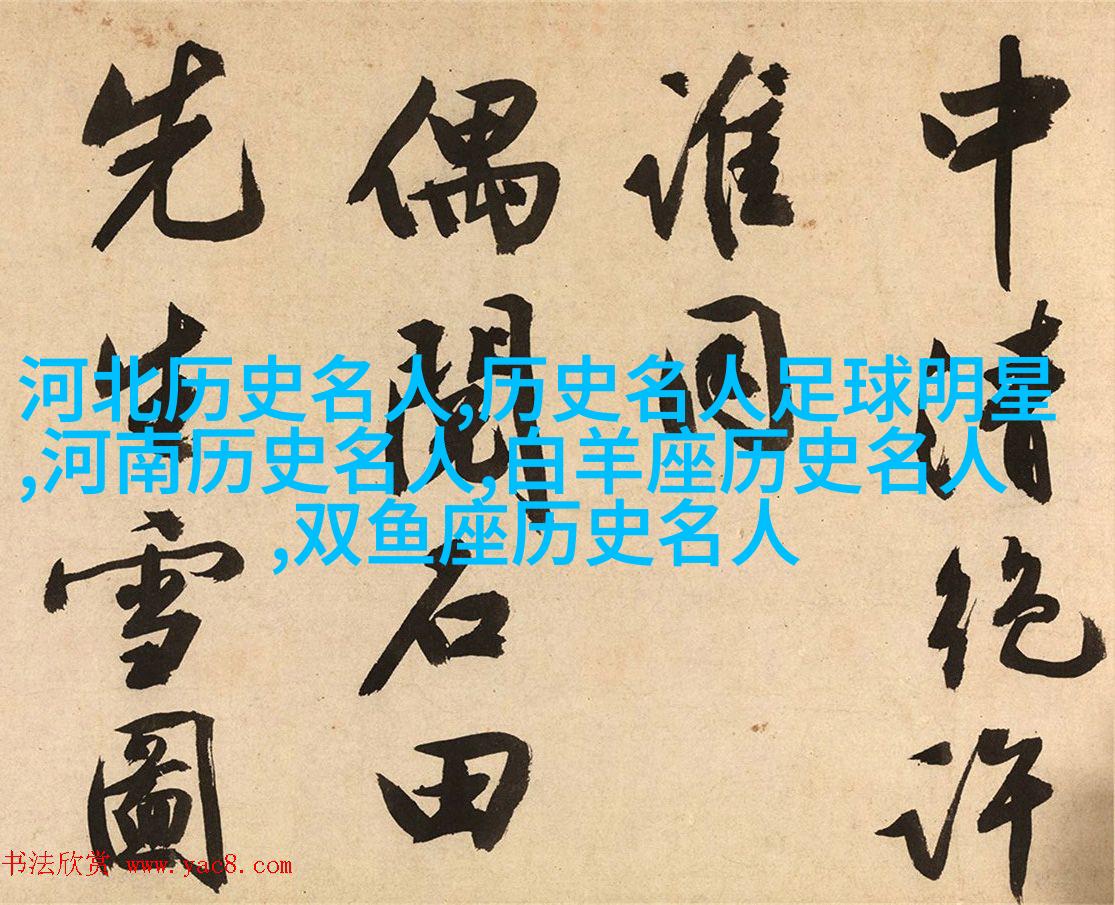 中清絶許
誰同
偶閱石田
先生雪圖
河北历史名人,历史名人足球明星
,河南历史名人,白羊座历史名人
,双鱼座历史名人
书法欣赏 www.yac8.com